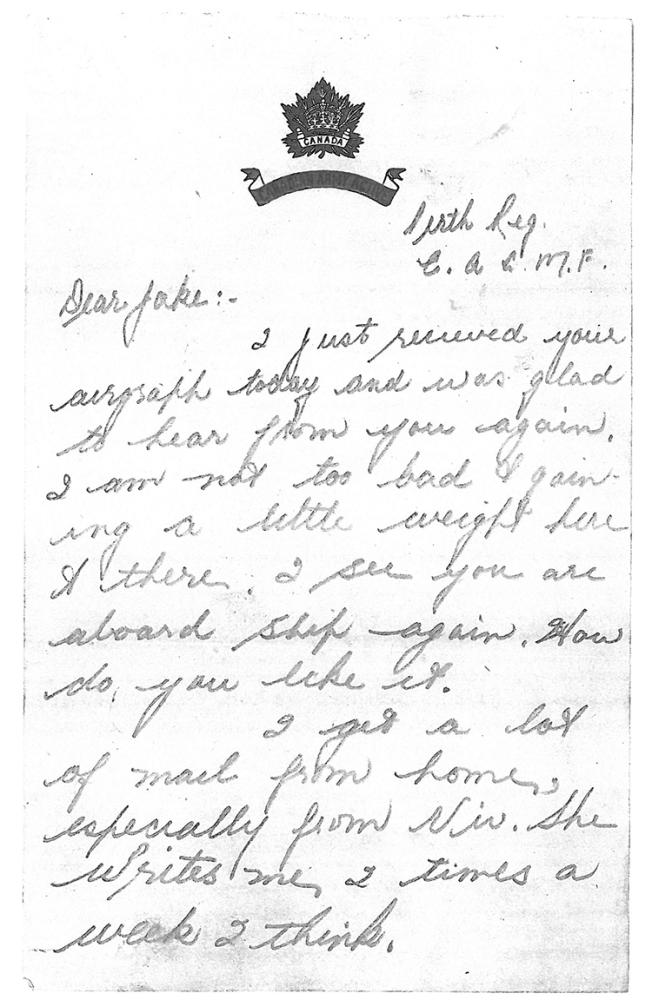 CANADA
CANADIAN ARMY ACTIVE
Perth Reg.
C. A. C. M. F.
Dear Jake:-
I just recieved your
airgraph today and was glad
to hear from you again.
I am not too bad & gain-
ing a little weight here
& there. I see you are
aboard ship again. How
do, you like it.
I get a lot
of mail from home,
especially from Viv. She
writes me, 2 times a
week I think.